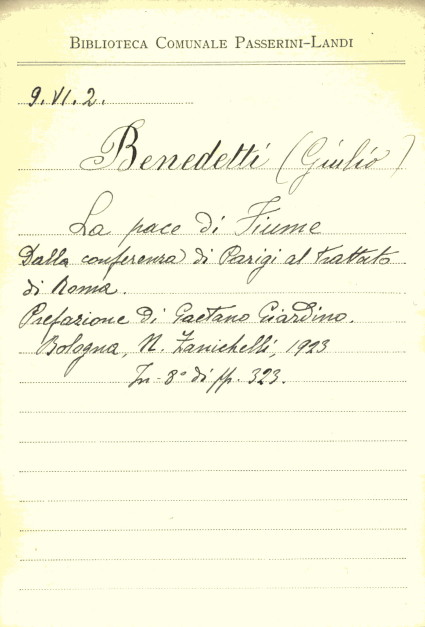 BIBLIOTECA COMUNALE PASSERINI-LANDI
9. VI. 2.
Benedetti (Giulio)
La pace di Fiume
Dalla conferenza di Parigi al trattato
di Roma.
Prefazione di Gaetano Giardino.
Bologna, N. Zanichelli, 1923
In-8° di pp. 323.